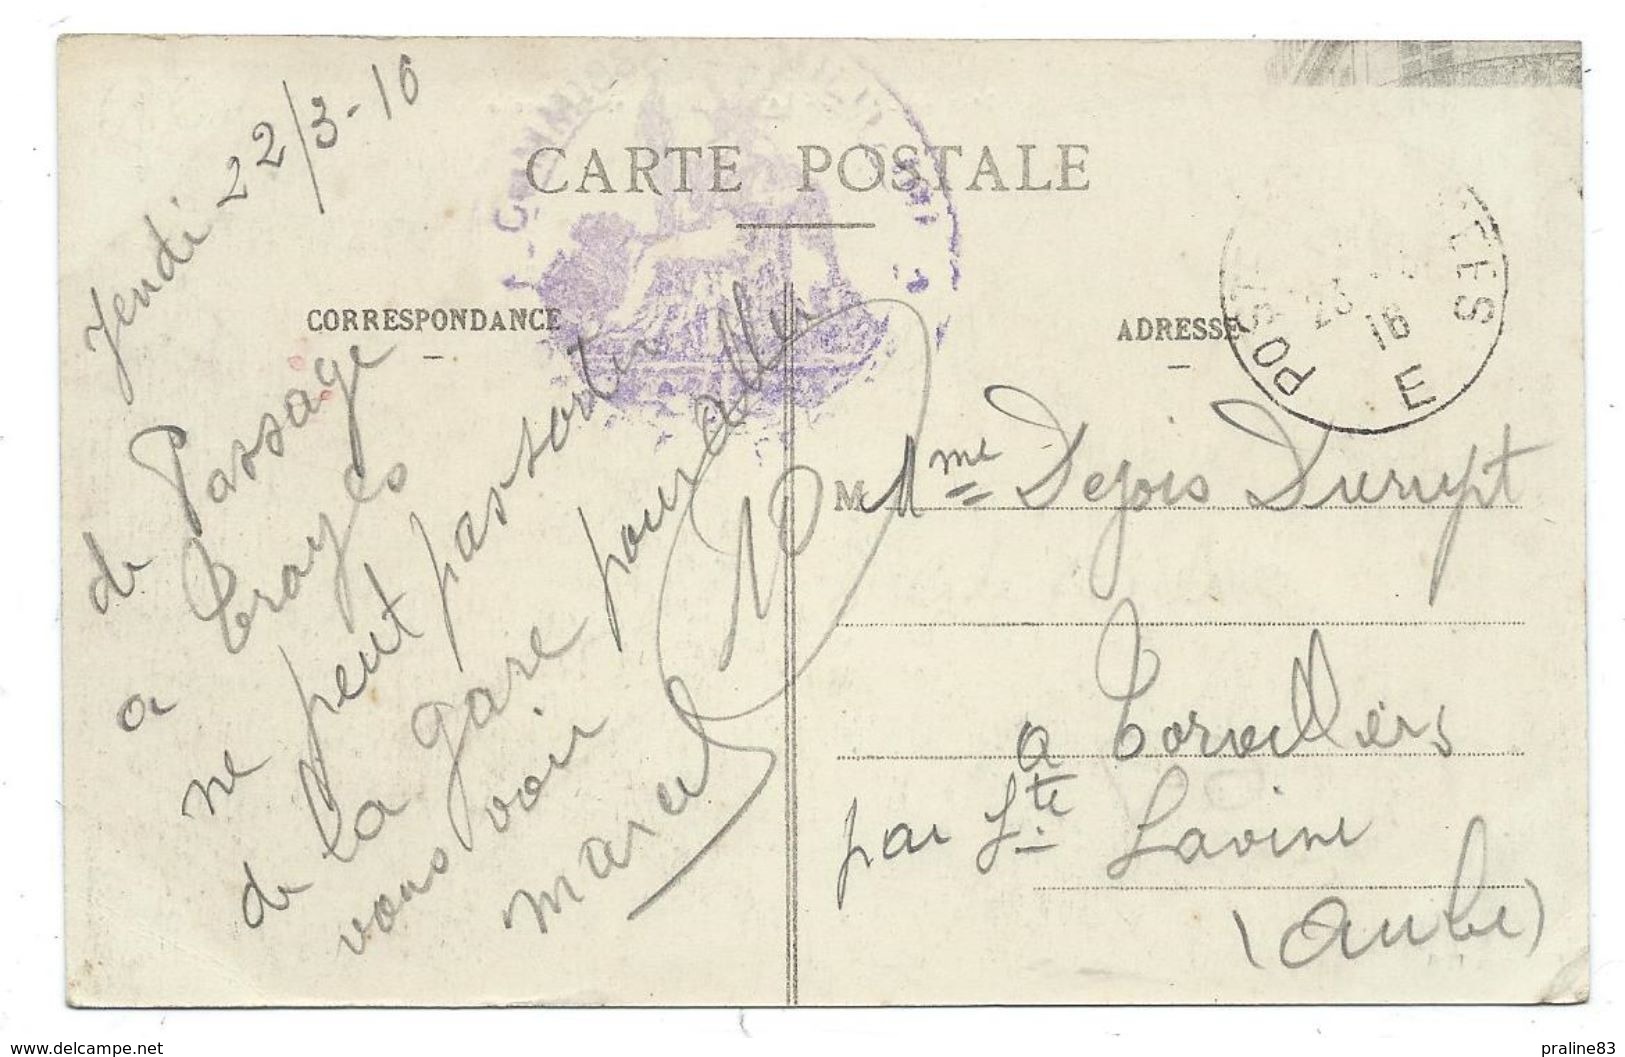 CARTE POSTALE
CORRESPONDANCE
ADRESSE
Jeudi 22/3-16
de Passage
a Troyes
ne peut pas sortir
de la gare pour aller
vous voir
Marcel
POST
ES
23
16
E
M
Mme Dejois Durupt
a Torvilliers
par Ste Savine
(Aube)
www.delcampe.net
praline83